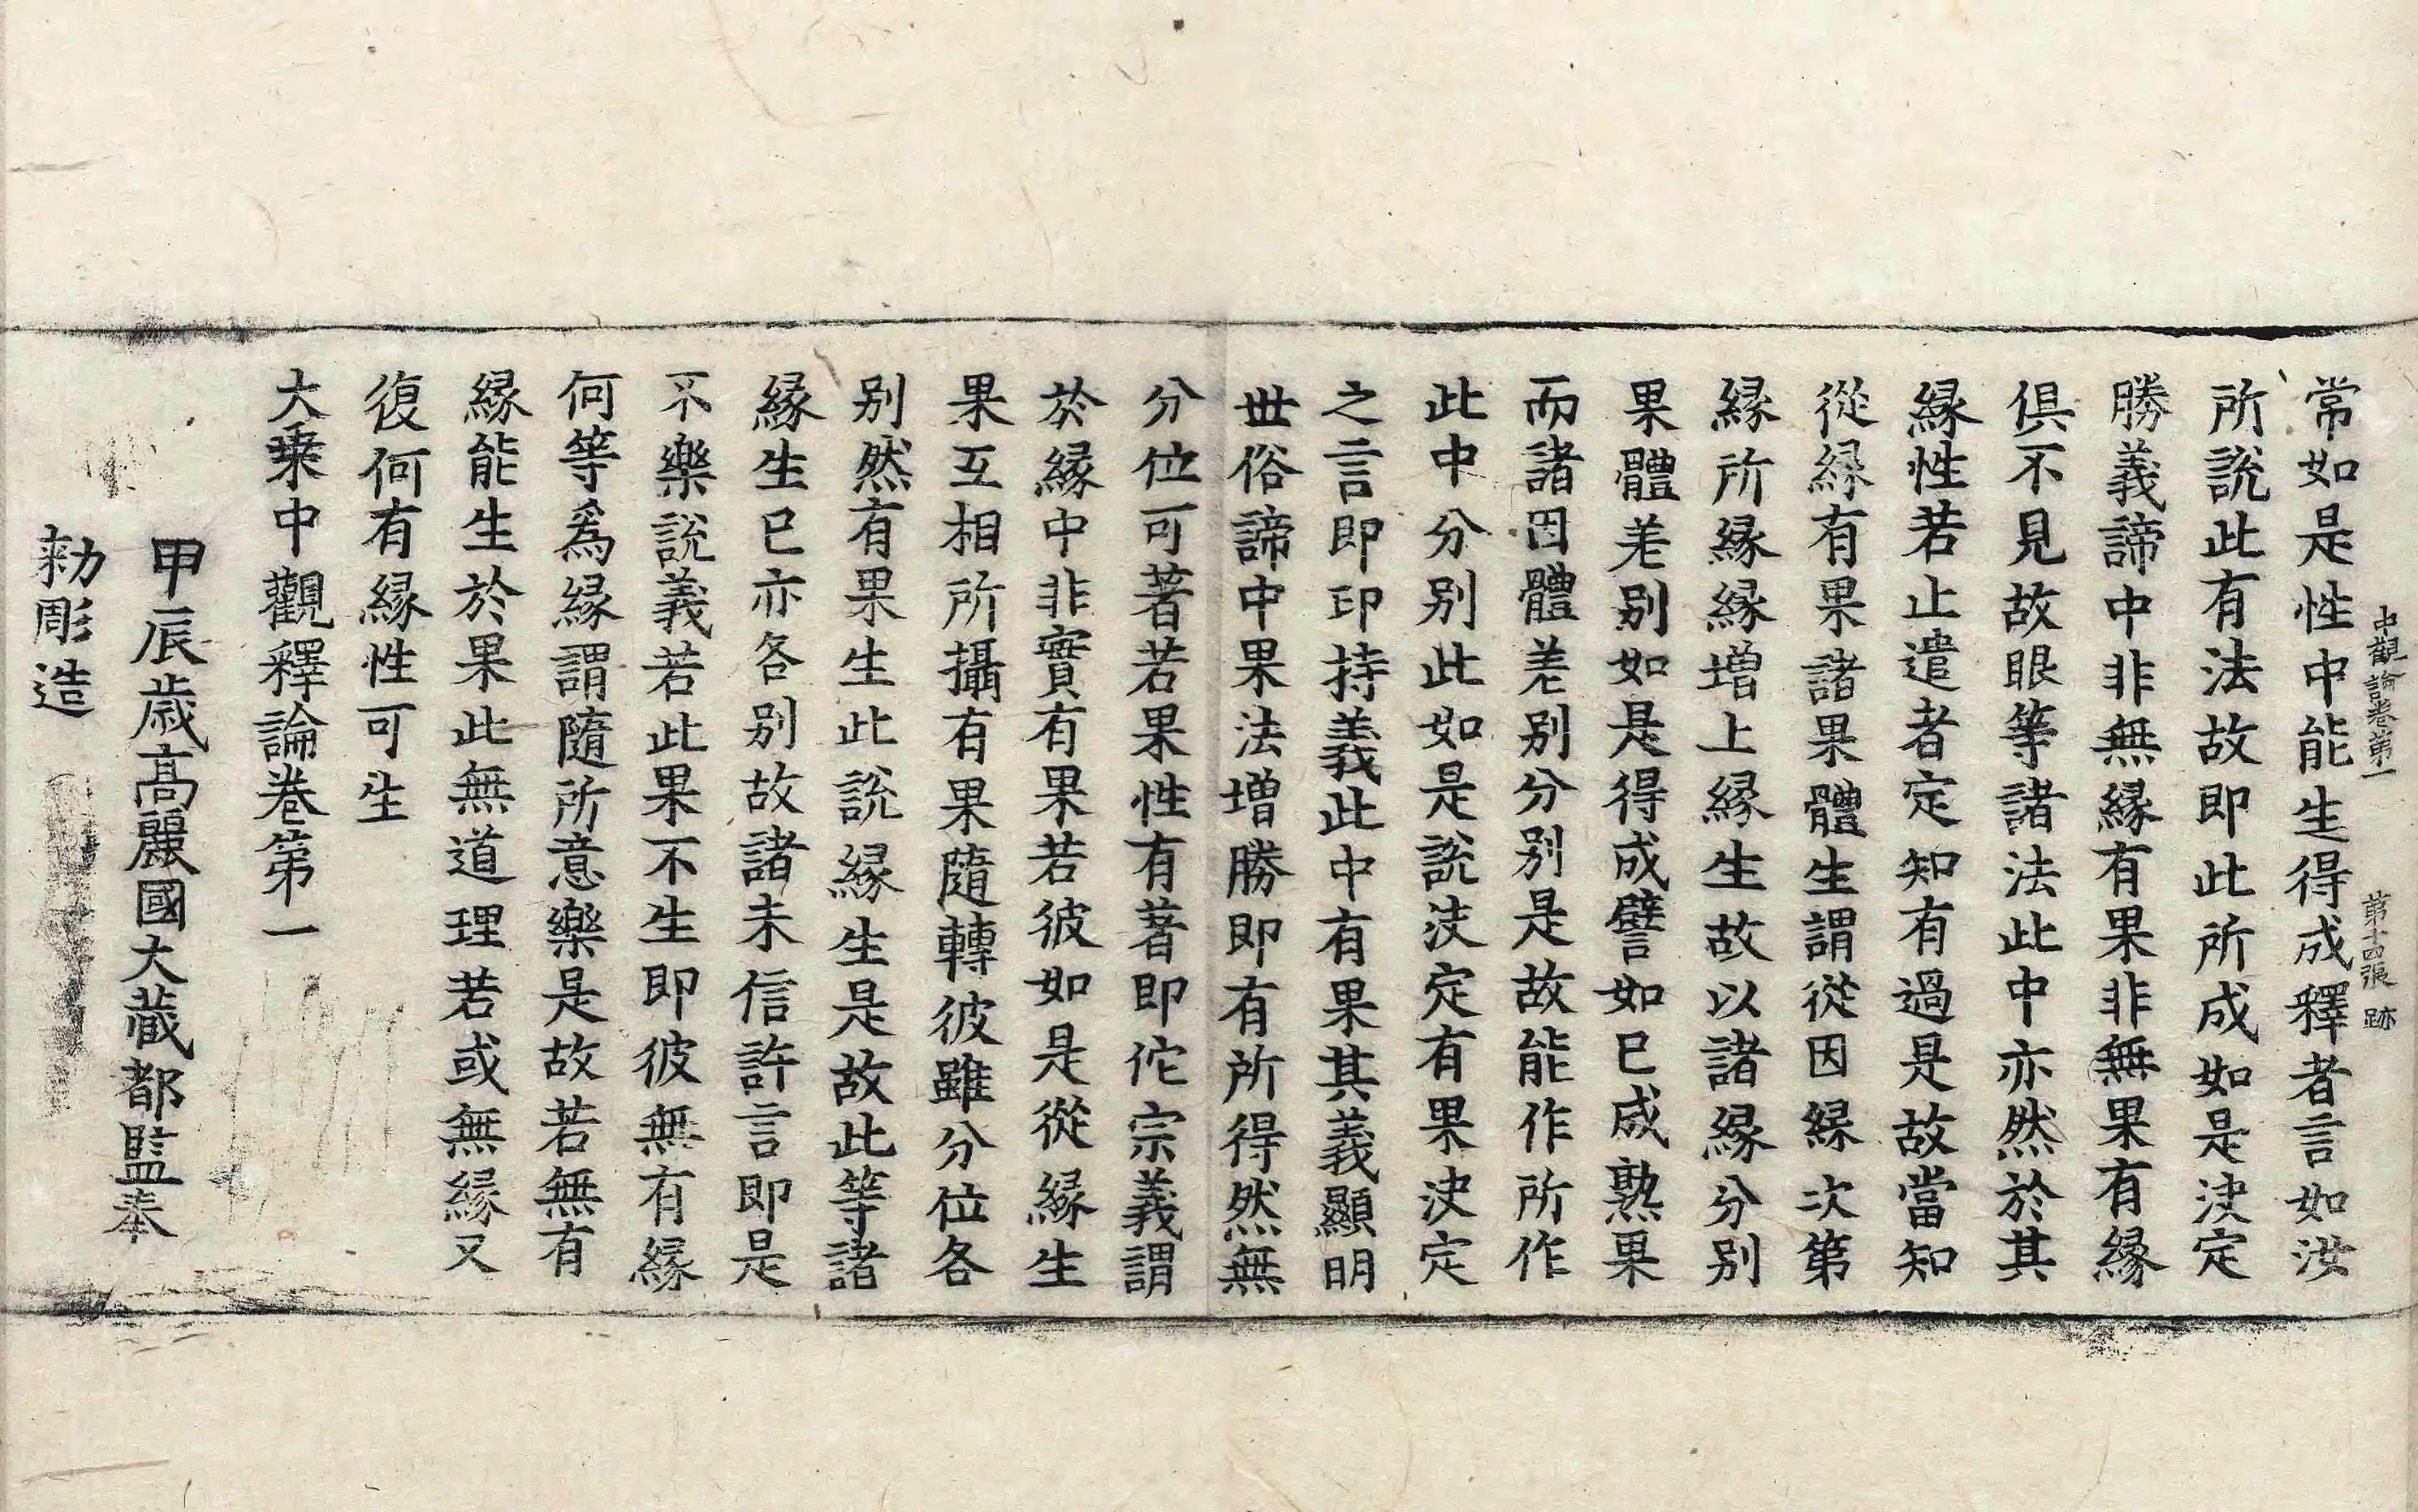 中觀論卷第一 第十四張 跡
常如是性中能生得成釋者言如汝
所說此有法故即此所成如是決定
勝義諦中非無緣有果非無果有緣
俱不見故眼等諸法此中亦然於其
緣性若止遣者定知有過是故當知
從緣有果諸果體生謂從因緣次第
緣所緣緣增上緣生故以諸緣分別
果體差別如是得成譬如已成熟果
而諸因體差別分別是故能作所作
此中分別此如是說決定有果決定
之言即印持義此中有果其義顯明
世俗諦中果法增勝即有所得然無
分位可著若果性有著即佗宗義謂
於緣中非實有果若彼如是從緣生
果互相所攝有果隨轉彼雖分位各
別然有果生此說緣生是故此等諸
緣生已亦各別故諸未信許言即是
不樂說義若此果不生即彼無有緣
何等爲緣謂隨所意樂是故若無有
緣能生於果此無道理若或無緣又
復何有緣性可生
大乘中觀釋論卷第一
甲辰歲高麗國大藏都監奉
勑彫造